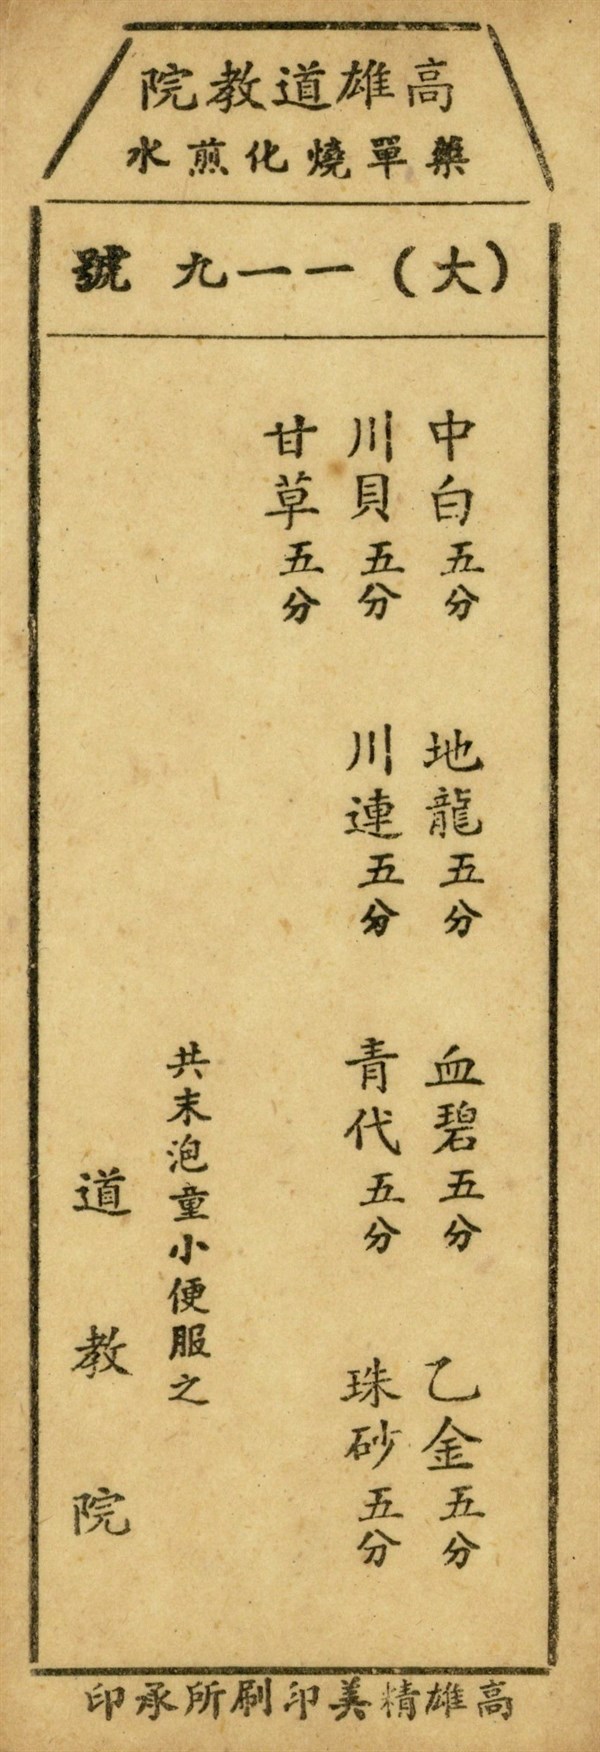 高雄道教院
藥單燒化煎水
（大）一一九 號
中白五分 地龍五分 血碧五分 乙金五分
川貝五分 川連五分 青代五分 珠砂五分
甘草五分
共末泡童小便服之
道教院
高雄精美印刷所承印